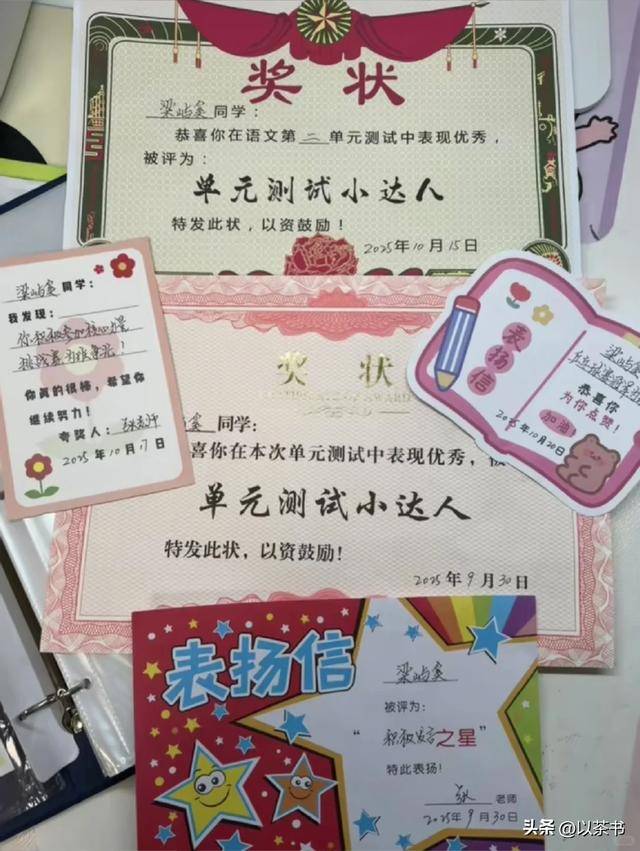 奖状
梁屿奚同学：
恭喜你在语文第二单元测试中表现优秀，
被评为：
单元测试小达人
特发此状，以资鼓励！
2025年10月15日
梁屿奚同学：
我发现：
你积极参加核心
挑战赛为班争光！
你真的很棒，希望你
继续努力！
夸奖人：
2025年10月17日
表扬信
梁屿奚
恭喜你
为你点赞！
加油！
2025年10月20日
奖状
CERTIFICATE OF AWARD
同学：
喜你在本次单元测试中表现优秀，被
单元测试小达人
特发此状，以资鼓励！
2025年9月30日
表扬信
梁屿奚
被评为：
“积极发言之星”
特此表扬！
老师
2025年9月30日
头条 @以茶书